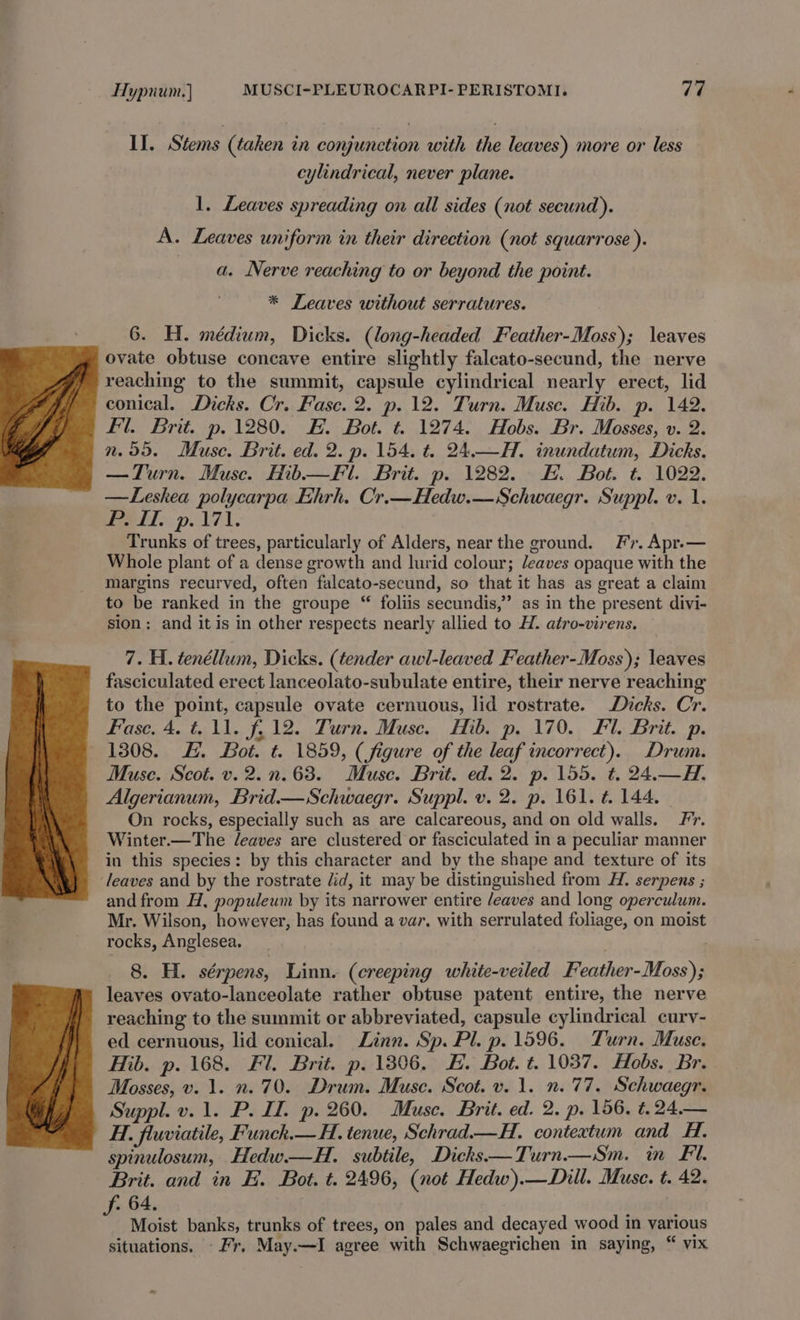 Hypnum.] MUSCI-PLEUROCARPI-PERISTOMI. 77
II. Stems (taken in conjunction with the leaves) more or less
cylindrical, never plane.
1. Leaves spreading on all sides (not secund).
A. Leaves uniform in their direction (not squarrose).
a. Nerve reaching to or beyond the point.
* Leaves without serratures.
6. H. médium, Dicks. (long-headed Feather-Moss); leaves
ovate obtuse concave entire slightly falcato-secund, the nerve
reaching to the summit, capsule cylindrical nearly erect, lid
conical. Dicks. Cr. Fasc. 2. p. 12. Turn. Musc. Hib. p. 142.
Fl. Brit. p. 1280. E. Bot. t. 1274. Hobs. Br. Mosses, v. 2.
n. 55. Musc. Brit. ed. 2. p. 154. t. 24.—H. inundatum, Dicks.
—Turn. Musc. Hib.—Fl. Brit. p. 1282. E. Bot. t. 1022.
—Leskea polycarpa Ehrh. Cr.—Hedw.—Schwaegr. Suppl. v. 1.
P. II. p. 171.
Trunks of trees, particularly of Alders, near the ground. Fr. Apr.—
Whole plant of a dense growth and lurid colour; leaves opaque with the
margins recurved, often falcato-secund, so that it has as great a claim
to be ranked in the groupe “ foliis secundis,” as in the present divi-
sion: and it is in other respects nearly allied to H. atro-virens.
7. H. tenéllum, Dicks. (tender awl-leaved Feather-Moss); leaves
fasciculated erect lanceolato-subulate entire, their nerve reaching
to the point, capsule ovate cernuous, lid rostrate. Dicks. Cr.
Fasc. 4. t. 11. f. 12. Turn. Musc. Hib. p. 170. Fl. Brit. p.
1308. E. Bot. t. 1859, (figure of the leaf incorrect). Drum.
Musc. Scot. v. 2. n. 63. Musc. Brit. ed. 2. p. 155. t. 24.—H.
Algerianum, Brid.—Schwaegr. Suppl. v. 2. p. 161. t. 144.
On rocks, especially such as are calcareous, and on old walls. Fr.
Winter.—The leaves are clustered or fasciculated in a peculiar manner
in this species: by this character and by the shape and texture of its
leaves and by the rostrate lid, it may be distinguished from H. serpens;
and from H. populeum by its narrower entire leaves and long operculum.
Mr. Wilson, however, has found a var. with serrulated foliage, on moist
rocks, Anglesea.
8. H. sérpens, Linn. (creeping white-veiled Feather-Moss);
leaves ovato-lanceolate rather obtuse patent entire, the nerve
reaching to the summit or abbreviated, capsule cylindrical curv-
ed cernuous, lid conical. Linn. Sp. Pl. p. 1596. Turn. Musc.
Hib. p. 168. Fl. Brit. p. 1306. E. Bot. t. 1037. Hobs. Br.
Mosses, v. 1. n. 70. Drum. Musc. Scot. v. 1. n. 77. Schwaegr.
Suppl. v. 1. P. II. p. 260. Musc. Brit. ed. 2. p. 156. t. 24.—
H. fluviatile, Funch.—H. tenue, Schrad.—H. contextum and H.
spinulosum, Hedw.—H. subtile, Dicks.—Turn.—Sm. in Fl.
Brit. and in E. Bot. t. 2496, (not Hedw).—Dill. Musc. t. 42.
f. 64.
Moist banks, trunks of trees, on pales and decayed wood in various
situations. Fr. May.—I agree with Schwaegrichen in saying, “ vix